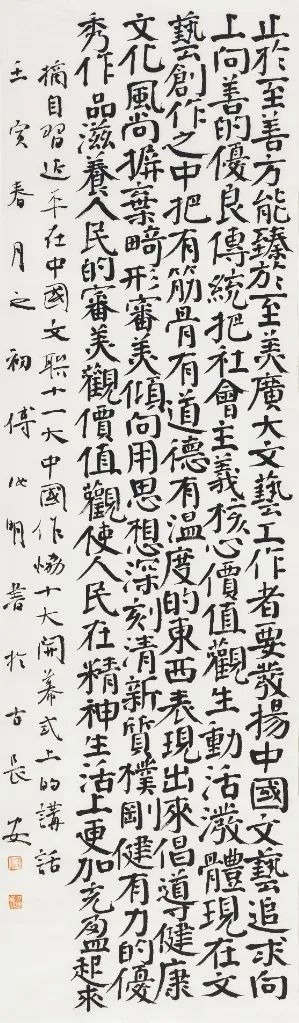 止於至善方能臻於至美廣大文藝工作者要發揚中國文藝追求向
上向善的優良傳統把社會主義核心價值觀生動活潑體現在文
藝創作之中把有筋骨有道德有溫度的東西表現出來倡導健康
文化風尚摒棄畸形審美傾向用思想深刻清新質樸剛健有力的優
秀作品滋養人民的審美觀價值觀使人民在精神生活上更加充盈起來
摘自習近平在中國文聯十一大中國作協十大開幕式上的講話
壬寅春月之初傅 明書於古長安